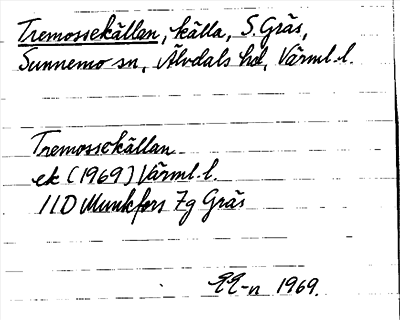 Tremossekällan, källa, S. Gräs,
Sunnemo sn, Älvdals hd, Värml. l.
Tremossekällan
ek (1969) Värml. l.
11D Munkfors 7g Gräs
1969.